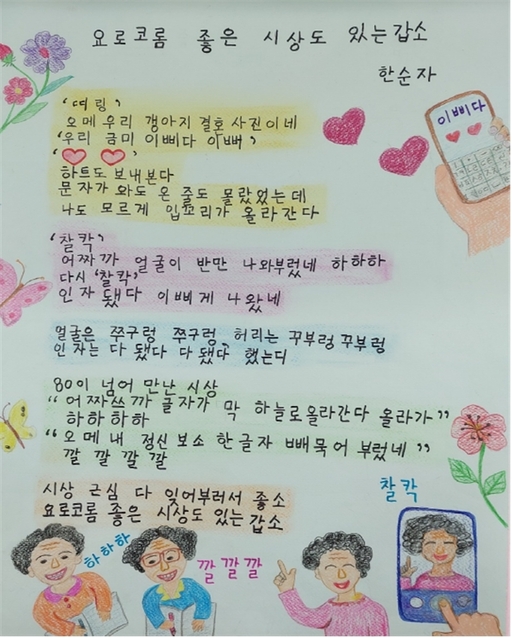 요로코롬 좋은 시상도 있는갑소
한순자
'띠링'
오메 우리 갱아지 결호 사진이네
'우리 금미 이삐다 이뻐'
'♥ ♥'
하트도 보내본다
문자가 와도 온 줄도 몰랐었는데
나도 모르게 입꼬리가 올라간다
이삐다
'찰칵'
어짜까 얼굴이 반만 나와부렀네 하하하
다시 '찰칵'
인자 됐다 이삐게 나왔네
얼굴은 쭈구렁 쭈구렁, 허리는 꾸부렁 꾸부렁
인자는 다 됐다 다 됐다 했는디
80이 넘어 만난 시상
"어짜쓰까 글자가 막 하늘로 올라간다 올라가"
하하하하
"오메 내 정신보소 한글자 빼묵어 부렀네"
깔 깔 깔 깔
시상 근심 다 잊어부러서 좋소
요로코롬 좋은 시상도 있는갑소
찰칵
하하하
깔깔깔